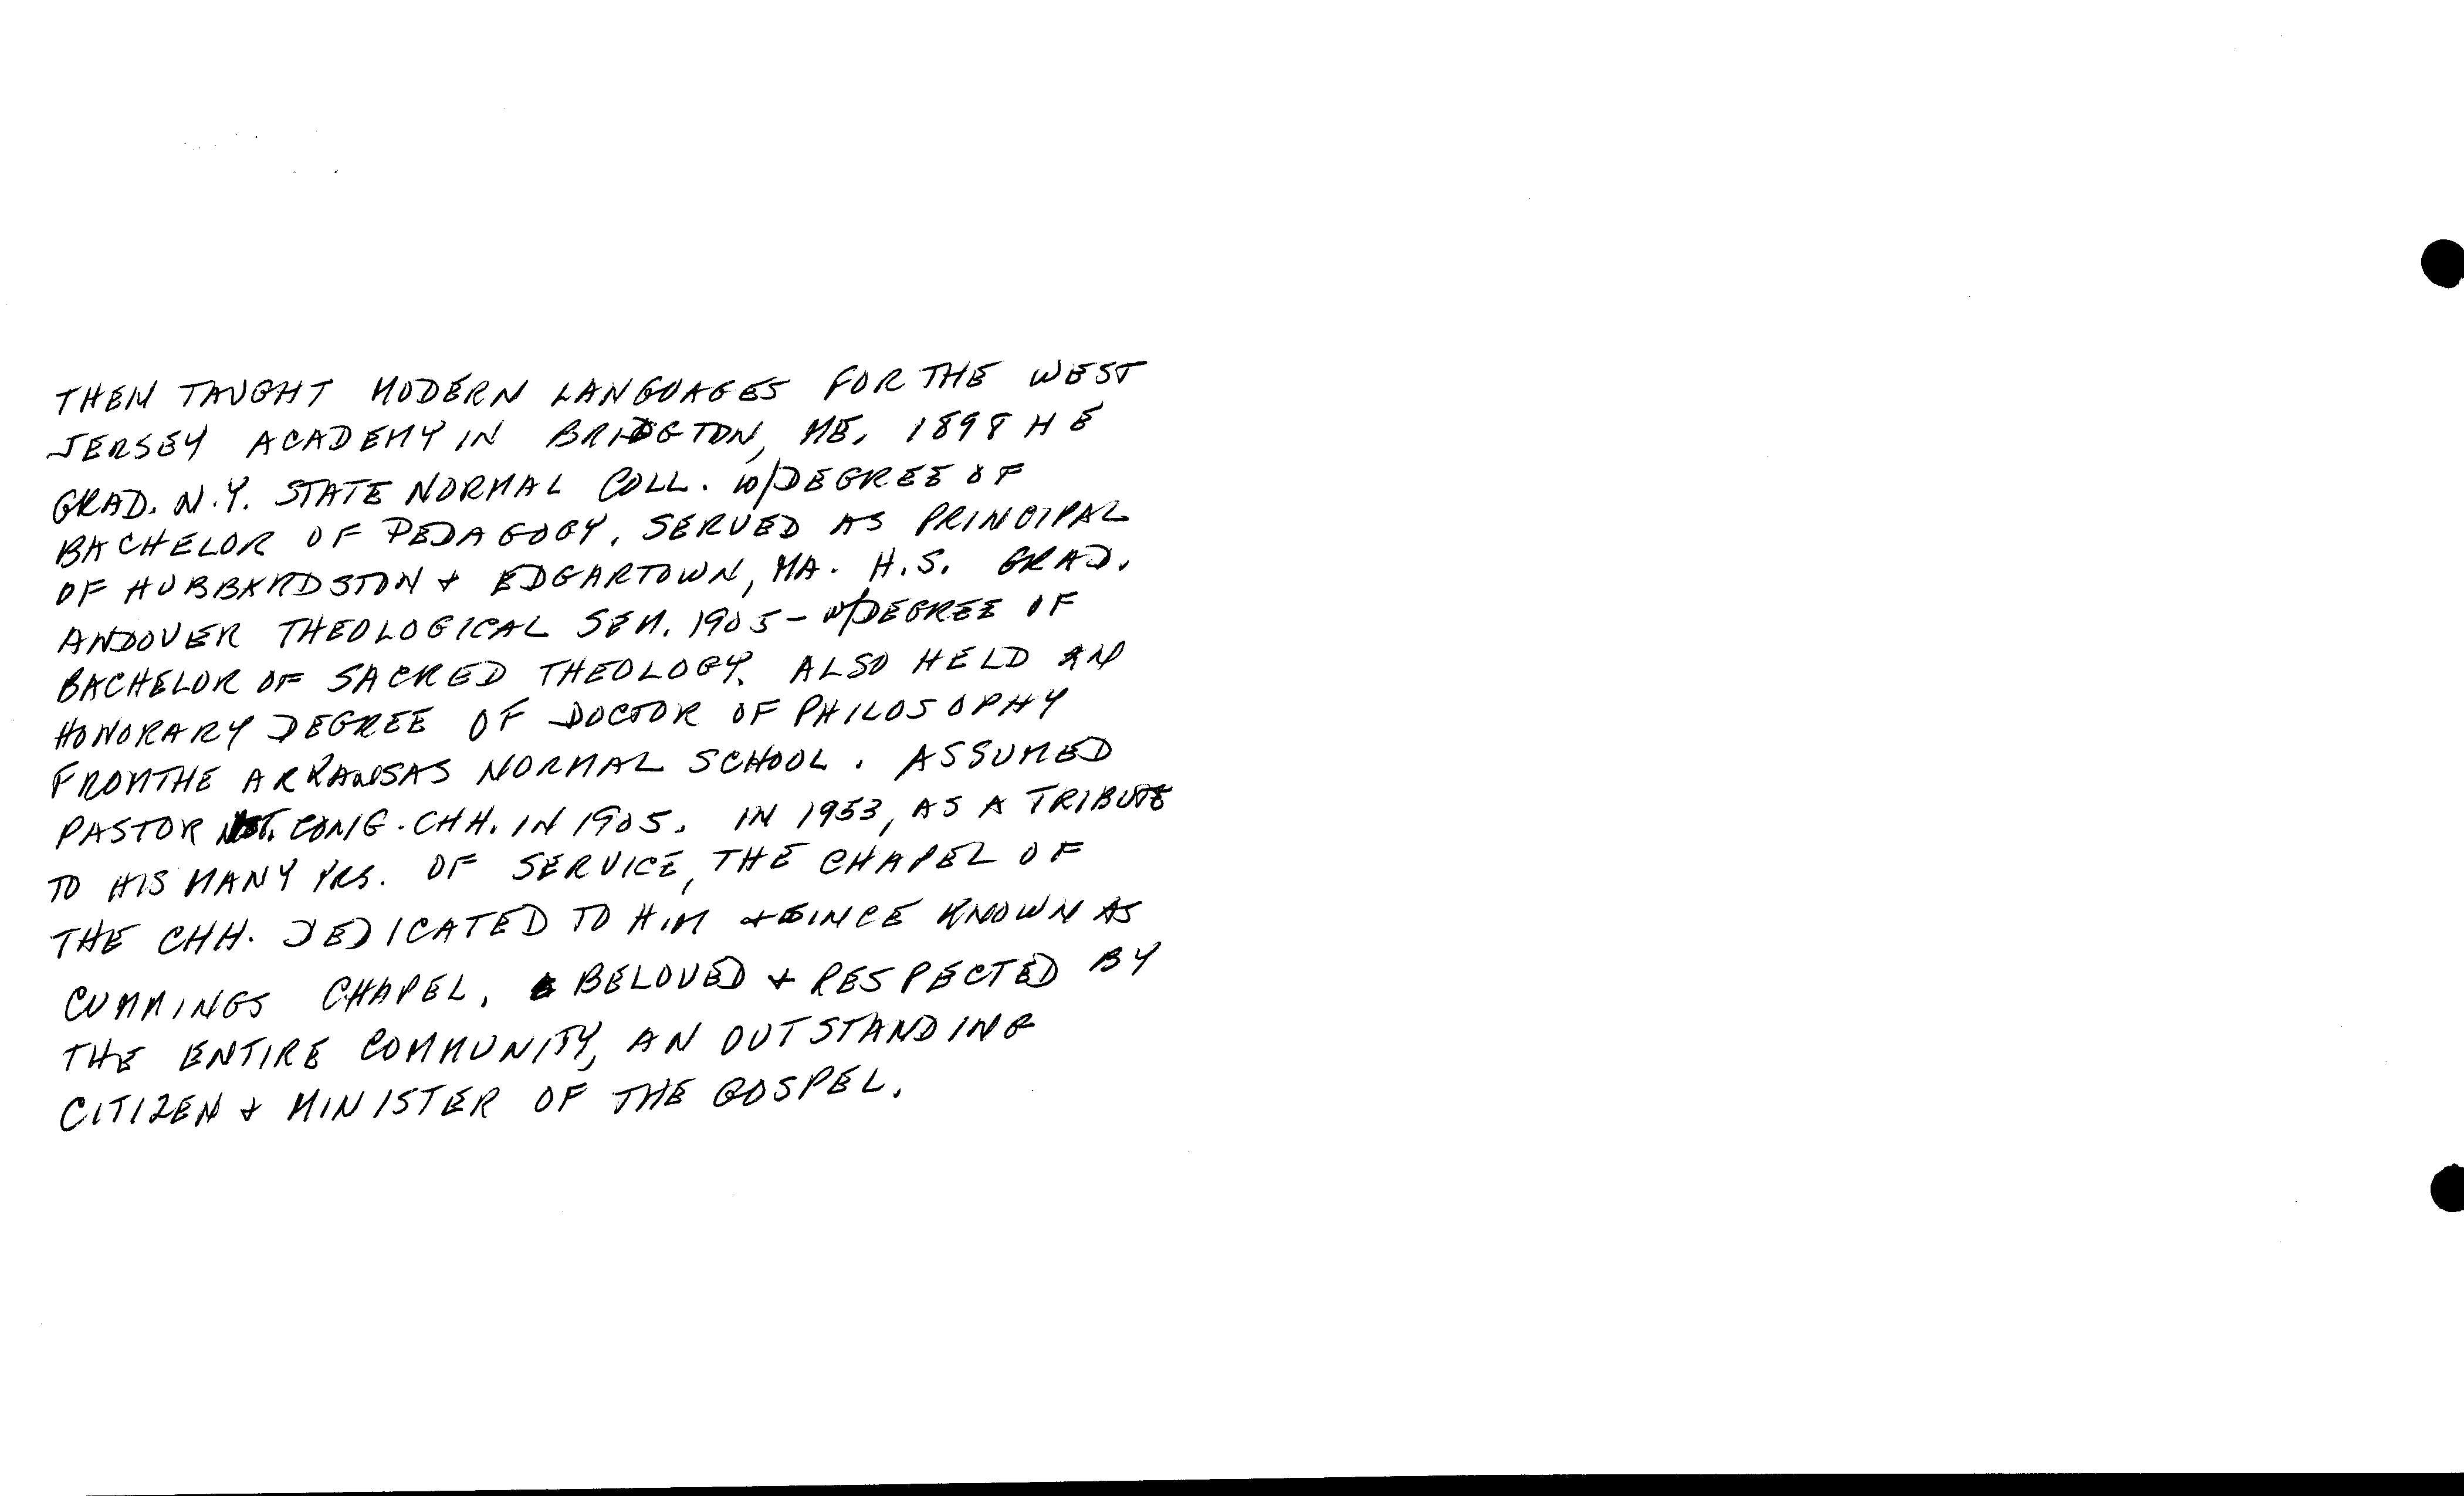 THEN TAUGHT MODERN LANGUAGES FOR THE WEST
JERSEY ACADEMY IN BRIDGTON, ME. 1898 HE
GRAD. N.Y. STATE NORMAL COLL. W/DEGREE OF
BACHELOR OF PEDAGOGY. SERVED AS PRINCIPAL
OF HUBBARDSTON & EDGARTOWN, MA. H.S. GRAD.
ANDOVER THEOLOGICAL SEM. 1905 - W/DEGREE OF
BACHELOR OF SACRED THEOLOGY. ALSO HELD AN
HONORARY DEGREE OF DOCTOR OF PHILOSOPHY
FROM THE ARKANSAS NORMAL SCHOOL. ASSUMED
PASTOR CONG. CHH. IN 1905. IN 1953, AS A TRIBUTE
TO HIS MANY YRS. OF SERVICE, THE CHAPEL OF
THE CHH. DEDICATED TO HIM & SINCE KNOWN AS
CUMMINGS CHAPEL. BELOVED & RESPECTED BY
THE ENTIRE COMMUNITY, AN OUTSTANDING
CITIZEN & MINISTER OF THE GOSPEL.